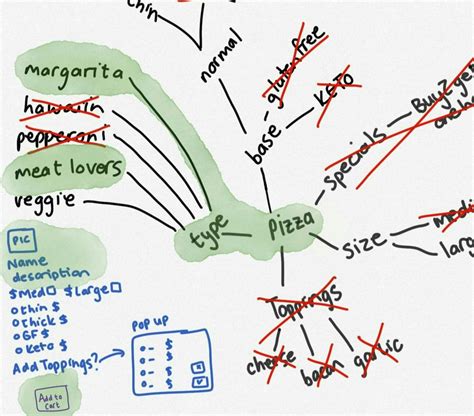 thin
normal
margarita
hawaiin
pepperoni
meat lovers
veggie
base
glutenfree
KETO
specials
Buy 2 get
one ha
type
Pizza
size
medi
larg
Toppings
cheese
bacon
garlic
PIC
Name
description
$Med $Large
thin $
thick $
GF $
Keto $
Add Toppings?
POP UP
- $
- $
- $
Add to
cart